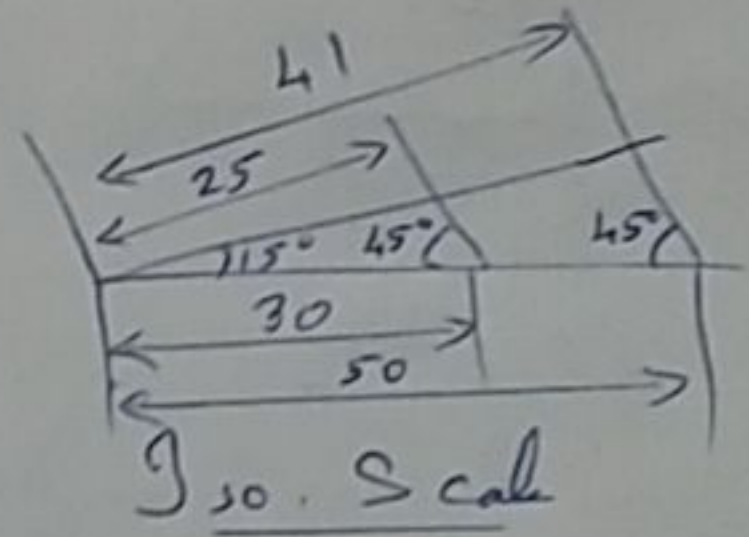 41
25
15° 45° 45°
30
50
Iso. Scale